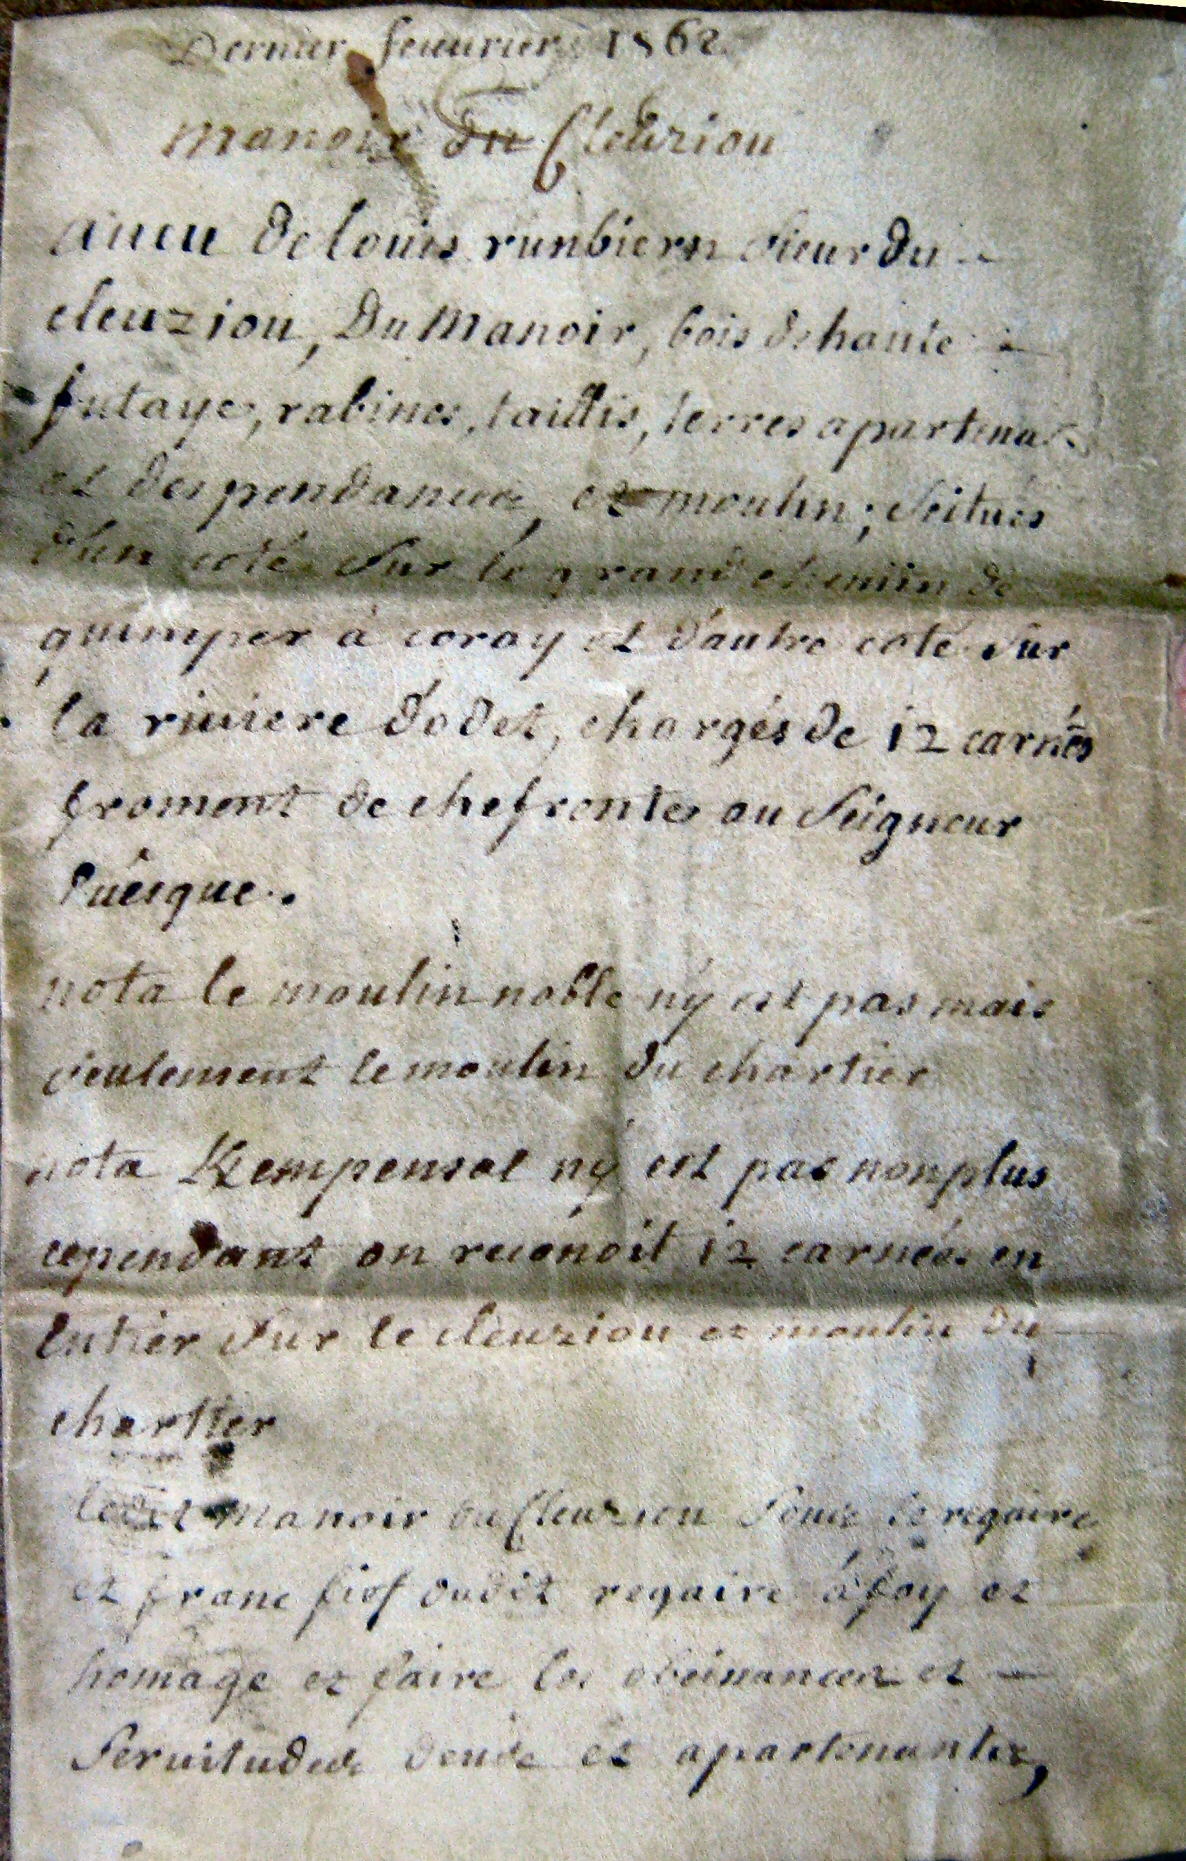 Dernier feuurier 1562
Manoir du Cleuziou
aueu de louis runbiern sieur du
cleuziou, Du Manoir, bois de haute
futaye, rabines, taillis, terres apartena
et despendances, et moulin; scitués
d'un coté sur le grand chemin de
quimper à coray et d'autre coté sur
la riuiere d'odet, chargés de 12 carnés
froment de chefrentes au seigneur
Euesque.
nota le moulin noble ny est pas mais
seulement le moulin du chartier
nota Kempensal ny est pas nonplus
cependant on reconoit 12 carnées en
entier sur le cleuziou et moulin du
chartier
ledit Manoir du Cleuziou sous le regaire
et franc fief dudit regaire à foy et
homage et faire les obeissances et
seruitudes deues et apartenantes,